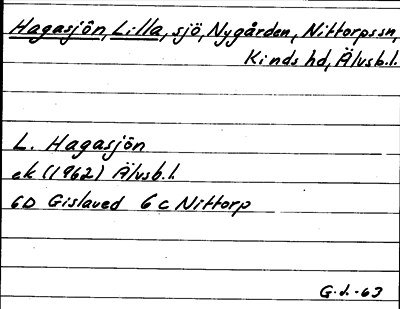 Hagasjön, Lilla, sjö, Nygården, Nittorpssn,
Kinds hd, Älvsb.l.
L. Hagasjön
ek (1962) Älvsb.l.
6D Gislaved 6 C Nittorp
G.J.-63